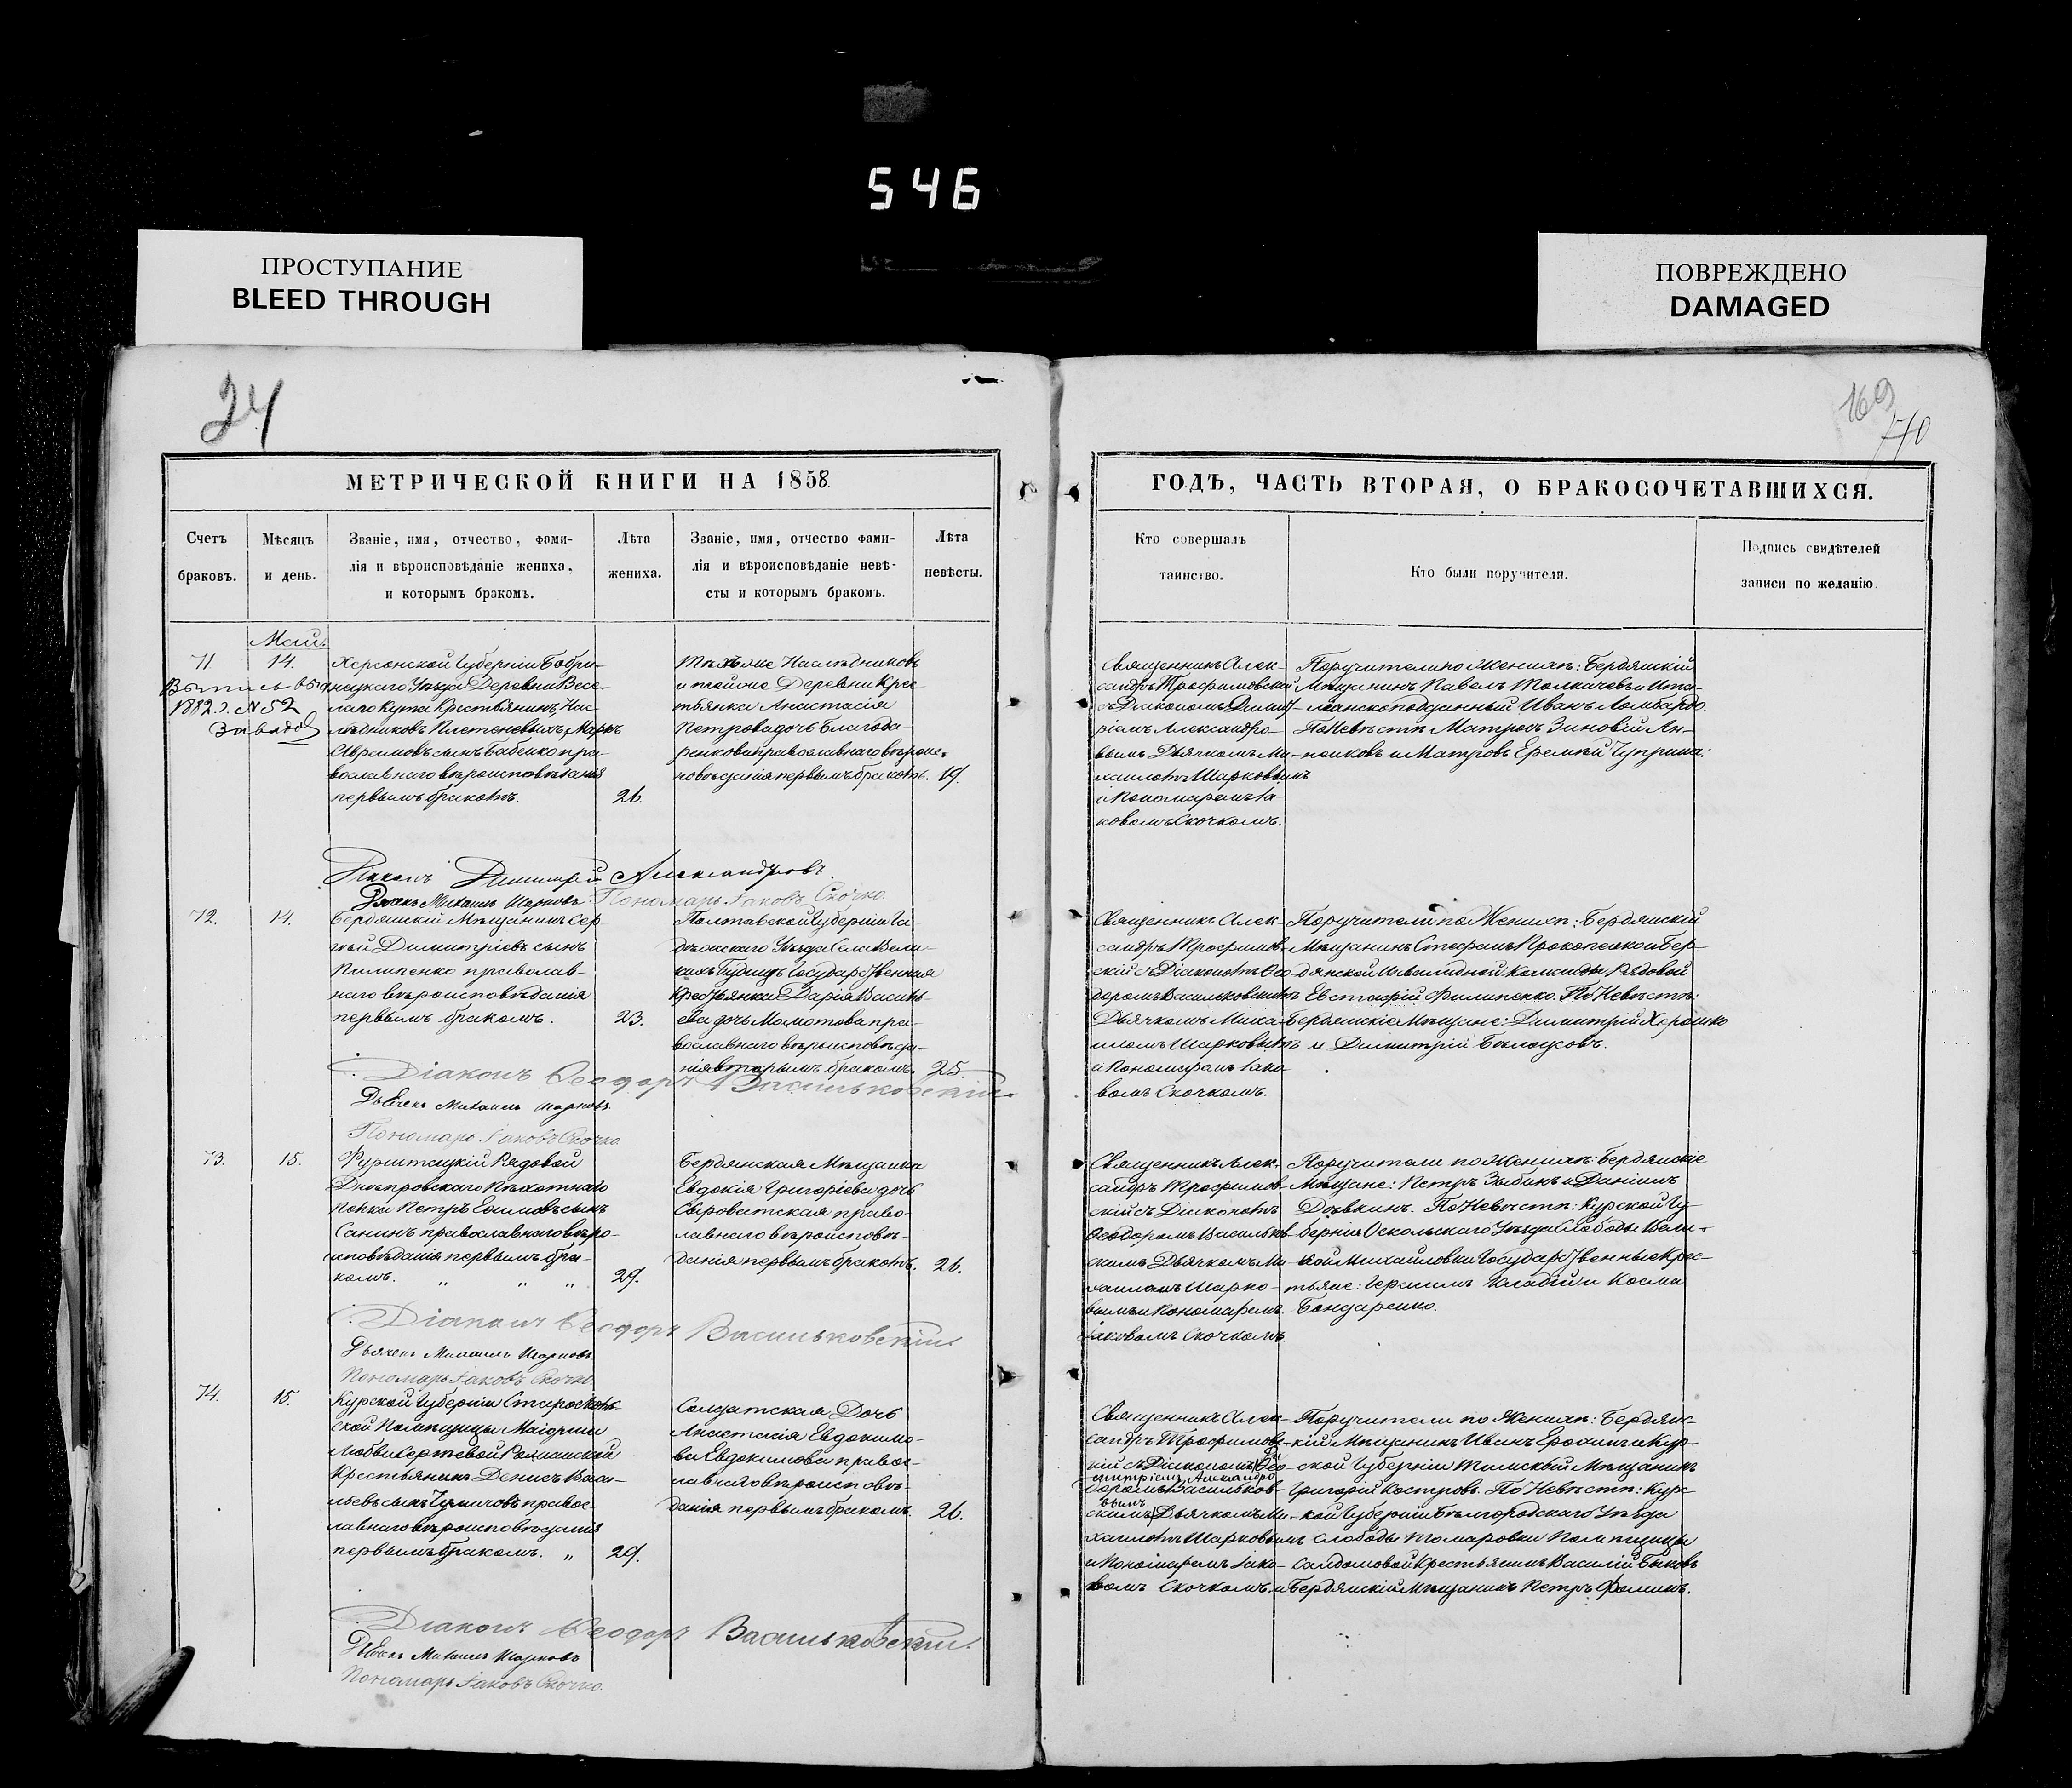 546
ПРОСТУПАНИЕ
BLEED THROUGH
ПОВРЕЖДЕНО
DAMAGED
24
169
170
МЕТРИЧЕСКОЙ КНИГИ НА 1858.
Счетъ браковъ.
Мѣсяцъ и день.
Званіе, имя, отчество, фами-
лія и вѣроисповѣданіе жениха,
и которымъ бракомъ.
Лѣта жениха.
Званіе, имя, отчество фами-
лія и вѣроисповѣданіе невѣ-
сты и которымъ бракомъ.
Лѣта невѣсты.
ГОДЪ, ЧАСТЬ ВТОРАЯ, О БРАКОСОЧЕТАВШИХСЯ.
Кто совершалъ таинство.
Кто были поручители.
Подпись свидѣтелей
записи по желанію.
Май.
71.
14.
1882 г. № 52
Херсонской Губерніи Бобри-
нецкаго Уѣзда Деревни Весе-
лаго Кута Крестьянинъ, Нас-
лѣдниковъ Плетеневыхъ, Марко
Аврамовъ сынъ Бабенко пра-
вославнаго вѣроисповѣданія
первымъ бракомъ.
26.
Тѣхъ же Наслѣдниковъ
и той же Деревни Крес-
тьянка Анастасія
Петрова дочь Благода-
ренкова православнаго вѣроис-
повѣданія первымъ бракомъ.
19.
Священникъ Алек-
сандръ Трофимовскій
съ Діакономъ Димит-
ріемъ Александро-
вымъ Дьячкомъ Ми-
хаиломъ Шарковымъ
и Пономаремъ Іа-
ковомъ Скочкомъ.
Поручители по Женихѣ: Бердянскій
Мѣщанинъ Павелъ Толкачевъ и Ита-
ліанско подданный Иванъ Ломбардо.
По Невѣстѣ Матросъ Зиновій Ан-
и Матросъ Еремѣй Чуприна.
Діаконъ Димитрій Александровъ.
Дьячекъ Михаилъ Шарковъ
Пономарь Іаковъ Скочко.
72.
14.
Бердянскій Мѣщанинъ Сер-
гѣй Димитріевъ сынъ
Пилипенко православ-
наго вѣроисповѣданія
первымъ бракомъ.
23.
Полтавской Губерніи Га-
дячскаго Уѣзда Села Вели-
кихъ Будищъ Государственная
Крестьянка Дарія Василь-
ева дочь Мамотова пра-
вославнаго вѣроисповѣда-
нія вторымъ бракомъ.
25.
Священникъ Алек-
сандръ Трофимов-
скій съ Діакономъ Ѳео-
доромъ Васильковскимъ
Дьячкомъ Миха-
иломъ Шарковымъ
и Пономаремъ Іако-
вомъ Скочкомъ.
Поручители по Женихѣ: Бердянскій
Мѣщанинъ Стефанъ и Бер-
дянской Инвалидной Команды Рядовой
Евстафій Филипенко. По Невѣстѣ:
Бердянскіе Мѣщане: Димитрій Хорошко
и Димитрій Бѣлоусовъ.
Діаконъ Ѳеодоръ Васильковскій.
Дьячекъ Михаилъ Шарковъ.
Пономарь Іаковъ Скочко
73.
15.
Фурштацкій Рядовой
Днѣпровскаго Пѣхотнаго
Полка Петръ Ефимовъ сынъ
Санинъ православнаго вѣро-
исповѣданія первымъ бра-
комъ. " " "
29.
Бердянская Мѣщанка
Евдокія Григоріева дочь
Сыроватская право-
славнаго вѣроисповѣ-
данія первымъ бракомъ.
26.
Священникъ Алек-
сандръ Трофимов-
скій съ Діакономъ
Ѳеодоромъ Васильков-
скимъ Дьячкомъ Ми-
хаиломъ Шарко-
вымъ и Пономаремъ
Іаковомъ Скочкомъ.
Поручители по Женихѣ: Бердянскіе
Мѣщане: Петръ Зыбинъ и Даніилъ
Довкинъ. По Невѣстѣ: Курской Гу-
берніи Оскольскаго Уѣзда Слободы Вели-
кой Михайловки Государственные Крес-
тьяне: Герасимъ и Косма
Бондаренко.
Діаконъ Ѳеодоръ Васильковскій
Дьячекъ Михаилъ Шарковъ
Пономарь Іаковъ Скочко.
74.
15.
Курской Губерніи Старосколь-
ской Помѣщицы Маіорши
Любви
Крестьянинъ Денисъ Васи-
льевъ сынъ правос-
лавнаго вѣроисповѣданія
первымъ бракомъ. "
29.
Солдатская Дочь
Анастасія Евдокимо-
ва Евдокимова правос-
лавнаго вѣроисповѣ-
данія первымъ бракомъ.
26.
Священникъ Алек-
сандръ Трофимовс-
кій съ Діакономъ Ѳео-
Димитріемъ Александро
доромъ Васильков-
вымъ
скимъ Дьячкомъ Ми-
хаиломъ Шарковымъ
и Пономаремъ Іако-
вомъ Скочкомъ.
Поручители по Женихѣ: Бердянс-
кій Мѣщанинъ Иванъ Ерохинъ и Кур-
ской Губерніи Тимскій Мѣщанинъ
Григорій Костровъ. По Невѣстѣ: Курс-
кой Губерніи Бѣлгородскаго Уѣзда
Слободы Томаровки Помѣщицы
Крестьянинъ Василій Быковъ
и Бердянскій Мѣщанинъ Петръ Фоминъ.
Діаконъ Ѳеодоръ Васильковскій.
Дьячекъ Михаилъ Шарковъ
Пономарь Іаковъ Скочко.